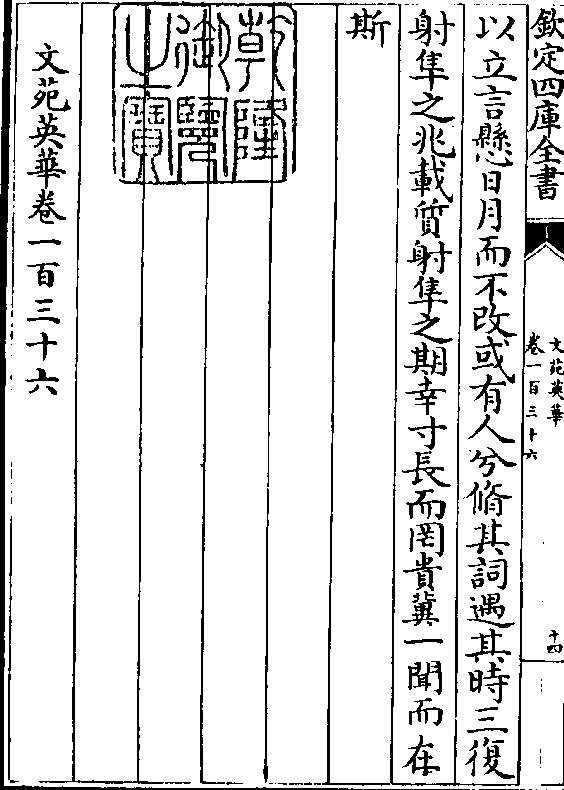 欽定四庫全書
文苑英華
卷一百三十六
十四
以立言懸日月而不改或有人兮脩其詞遇其時三復
射隼之兆載質射隼之期幸寸長而罔貴冀一聞而在
斯
乾隆御覽之寶
文苑英華卷一百三十六